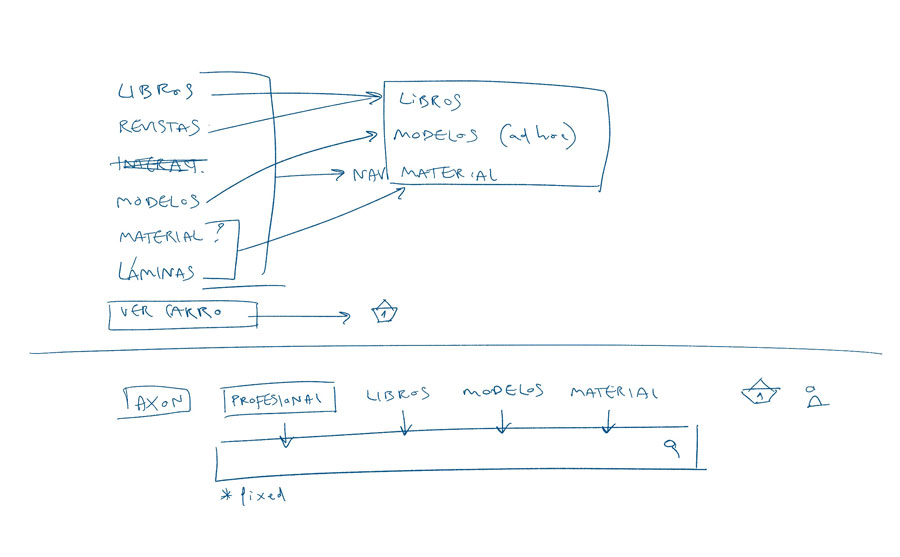 LIBROS
REVISTAS
MODELOS
MATERIAL ?
LÁMINAS
VER CARRO
LIBROS
MODELOS (ad hoc)
NAV MATERIAL
1
AXON PROFESIONAL LIBROS MODELOS MATERIAL 1
* fixed